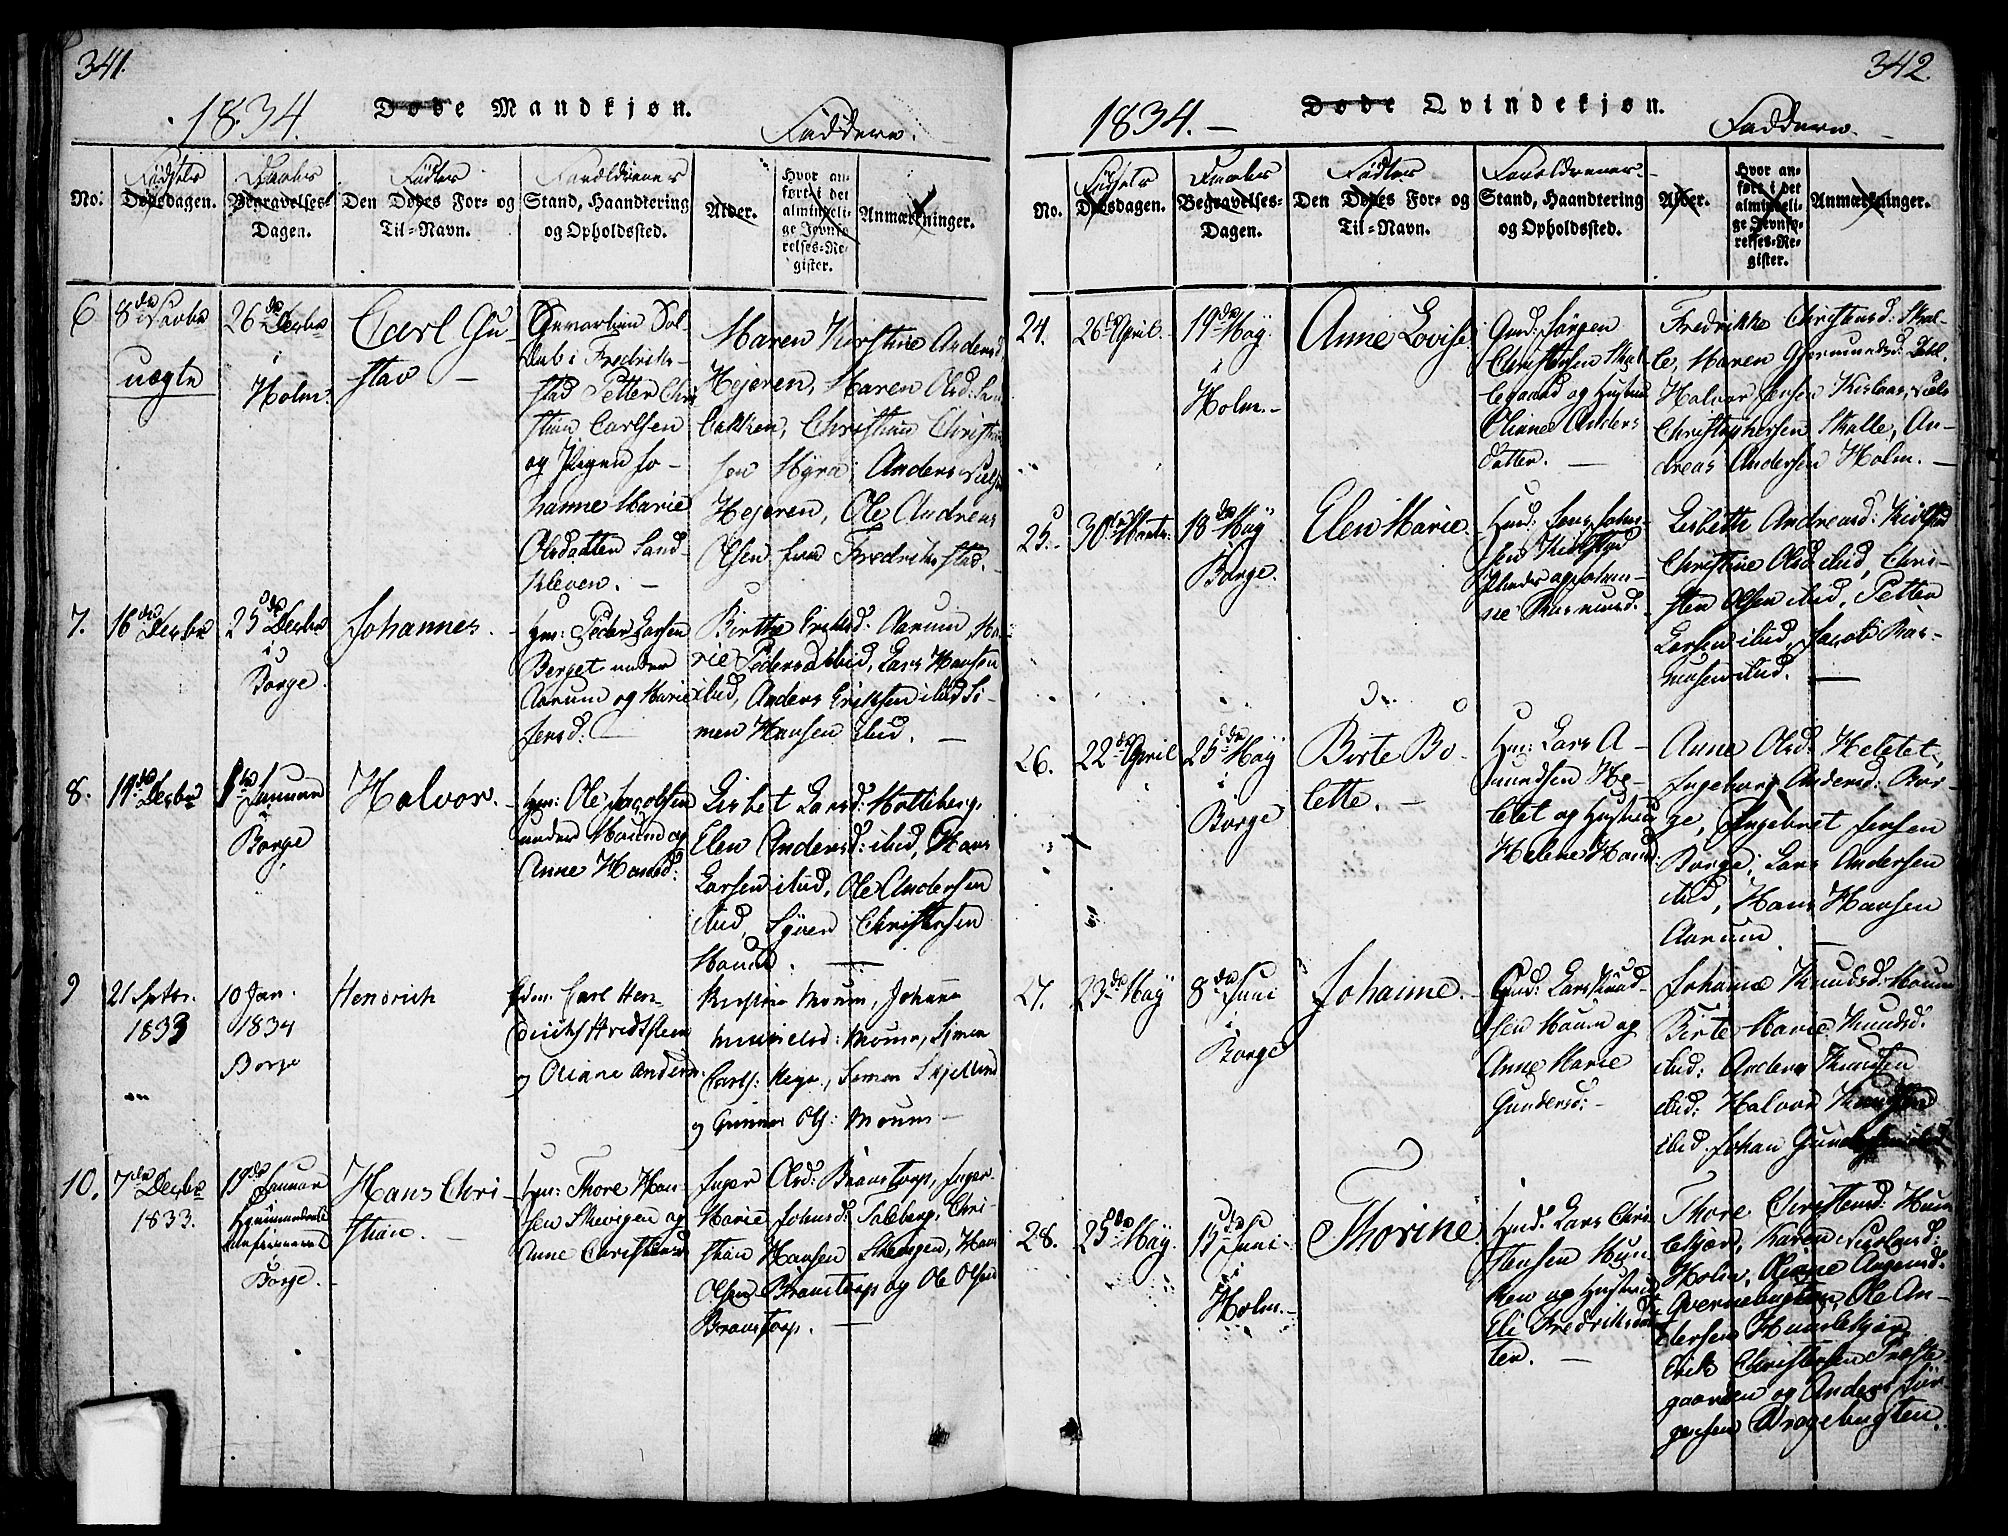 341.
1834.
Døde Mandkjøn.
Faddere.
No.
Fødsels
Dødsdagen.
Daabs
Begravelses-
Dagen.
Fødtes
Den Dødes For- og
Til-Navn.
Forældrenes
Stand, Haandtering
og Opholdssted.
Alder.
Hvor an-
ført i det
almindeli-
ge Jevnfø-
relses-Re-
gister.
Anmærkninger.
6
8de Novbr
uægte
26de Decbr
i
Holm.
Carl Gu-
stav
Sol-
dat i Fredrik-
stad Petter Chri
stian Carlsen
og Pigen Jo-
hanne Marie
Olsdatter Sand-
kleven.
Maren Kirstine Andersd
Hejeren, Maren Olsd: San
bakken, Christian Christian
sen Myra, Anders Niels
Hejeren, Ole Andreas
Olsen fra Fredrikstad.
7.
16de Decbr
25de Decbr
i
Borge.
Johannes.
Hm: Peder Larsen
Berget under
Aarum og Marie
Jensd:
Birthe Eriksd: Aarum Ma-
rie Pedersd ibid, Lars Hansen
ibid, Anders Eriksen ibid Si-
men Hansen ibid.
8.
19de Decbr
1ste Januar
i
Borge
Halvor.
Hm: Ole Jacobsen
under Moum og
Anne Hansd:
Lisbet Larsd: Holleberg,
Elen Andersd: ibid, Hans
Larsen ibid, Ole Andersen
ibid, Søren Christensen
Moum.
9
21 Sptbr.
1833
10 Jan.
1834
Borge
Hendrich
Carl Hen-
og Oliane Anders
Kirstine Moum, Johanne
Moum, Simen
Simon Skjelin
og Gunner Ols: Moum
10.
7de Decbr
1833.
19de Januar
Hjemmedøbt
Borge.
Hans Chri-
stian.
Hm: Thore Han-
sen Skevigen og
Anne Christensd
Inger Olsd: Branstorp, Inger
Marie Johnsd: Torsberg, Chri-
stian Hansen Skevigen, Hans
Olsen Branstorp og Ole Olsen
Branstorp.
342
1834.
Døde Qvindekjøn.
Faddere.
No.
Fødsels
Dødsdagen.
Daabs
Begravelses-
Dagen.
Fødtes
Den Dødes For- og
Til-Navn.
Forældrenes
Stand, Haandtering
og Opholdssted.
Alder.
Hvor an-
ført i det
almindeli-
ge Jevnfø-
relses-Re-
gister.
Anmærkninger.
24.
26de April.
19de May
i
Holm.
Anne Lovise
Gmd: Jørgen
Christensen Skal-
legaard og Hustru
Oliane Anders
datter.
Fredrikke Christensd: Skal-
le, Maren Gjermundsd:
Halvor Jensen Kislaas, Niels
Christophersen Skalle, An-
dreas Andersen Holm.
25.
30de Marts.
18de May
Borge.
Elen Marie.
Hmd: Jens Johan-
sen
Plads og Johan-
ne Rasmusd.
Lisbeth Andreasd:
Christine Olsd ibid, Chri-
sten Olsen ibid, Petter
Larsen ibid, Jacob Ras-
musen ibid.
26.
22de April
25de May
i
Borge
Birte Bo-
lette.
Hm: Lars A-
mundsen He-
letet og Hustru
Helene Hansd:
Anne Olsd: Heletet,
Ingeborg Andersd: Bor-
ge, Ingebret Jensen
Borge, Lars Andersen
ibid, Hans Hansen
Aarum.
27.
23de May
8de Juni
i
Borge
Johanne.
Gmd: Lars Knud-
sen Moum og
Anne Marie
Gundersd:
Johanne Knudsd: Moum
Birte Marie Knudsd.
ibid: Anders Knudsen
ibid: Halvor Knudsen
ibid. Johan
28.
25de May.
15de Juni
i
Holm.
Thorine
Hmd: Lars Chri-
stensen Hun-
ken og Hustru
Eli Fredriksdat
ter.
Thore Christensd: Hun
lekjær, Karen Nielsd:
Holm, Oliane Augensd.
Qvernebugten, Ole An-
dersen Hunlekjær,
Erik Christensen Præste-
gaarden og Anders Jør-
gensen Dragebugten.